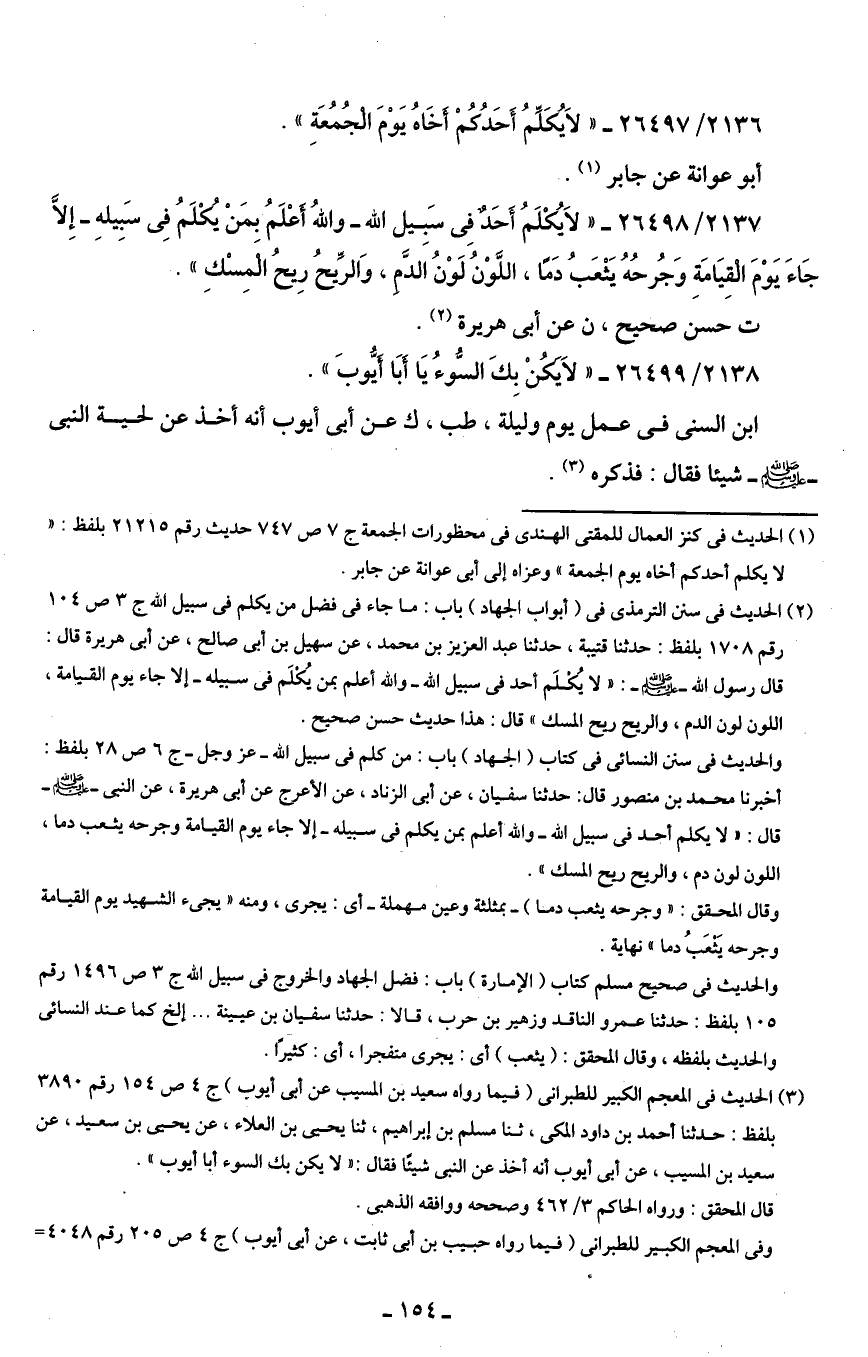 ٢١٣٦/ ٢٦٤٩٧ ـ « لاَيُكَلِّمُ أَحَدُكُمْ أَخَاهُ يَوْمَ الْجُمُعَةِ » .
أبو عوانة عن جابر (١) .
٢١٣٧/ ٢٦٤٩٨ ـ « لاَيُكْلَمُ أَحَدٌ فِى سَبِيل الله ـ واللهُ أَعْلَمُ بِمَنْ يُكْلَمُ فِى سَبِيلِهِ ـ إِلاَّ
جَاءَ يَوْمَ الْقِيَامَةِ وَجُرحُهُ يَثْعَبُ دَمًا ، اللَّوْنُ لَوْنُ الدَّمِ ، وَالرِّيحُ رِيحُ الْمِسْكِ » .
ت حسن صحيح ، ن عن أبى هريرة (٢) .
٢١٣٨/ ٢٦٤٩٩ ـ « لاَيَكُنْ بِكَ السُّوءُ يَا أَبَا أَيُّوبَ » .
ابن السنى فـى عـمل يوم وليلة ، طب ، ك عـن أبى أيوب أنه أخـذ عن لحيـة النبى
ـ ﷺ ـ شيئا فقال : فذكره (٣) .
(١) الحديث فى كنز العمال للمقتى الهندى فى محظورات الجمعة ج ٧ ص ٧٤٧ حديث رقم ٢١٢١٥ بلفظ : «
لا يكلم أحدكم أخاه يوم الجمعة » وعزاه إلى أبى عوانة عن جابر .
(٢) الحديث فى سنن الترمذى فى ( أبواب الجهاد ) باب : مـا جاء فى فضل من يكلم فى سبيل الله ج ٣ ص ١٠٤
رقم ١٧٠٨ بلفظ : حدثنا قتيبة ، حدثنا عبد العزيز بن محمد ، عن سهيل بن أبى صالح ، عن أبى هريرة قال :
قال رسول الله ـ ﷺ ـ : « لا يُكْـلَم أحد فى سبيل الله ـ والله أعلم بمن يُكْلَم فى سبيله ـ إلا جاء يوم القيـامة ،
اللون لون الدم ، والريح ريح المسك » قال : هذا حديث حسن صحيح .
والحديث فى سنن النسائى فى كتاب ( الجـهاد ) باب : من كلم فى سبيل الله ـ عز وجل ـ ج ٦ ص ٢٨ بلفظ :
أخبرنا محـمد بن منصور قال: حدثنا سفـيان ، عن أبى الزناد ، عن الأعرج عن أبى هريرة ، عن النبى ـ ﷺ ـ
قال : « لا يكلم أحـد فى سبيل الله ـ والله أعلم بمن يكلم فى سـبيله ـ إلا جاء يوم القيامة وجرحه يثـعب دما ،
اللون لون دم ، والريح ريح المسك » .
وقال المحـقق : « وجرحه يثعب دمـا ) ـ بمثلثة وعين مـهملة ـ أى : يجرى ، ومنه « يجىء الشـهيد يوم القيامة
وجرحه يَثْعَبُ دما » نهاية .
والحديث فى صحيح مسلم كتاب ( الإمـارة ) باب : فضل الجهاد والخروج فى سبيل الله ج ٣ ص ١٤٩٦ رقم
١٠٥ بلفظ : حدثنا عـمرو الناقـد وزهير بن حرب ، قـالا : حدثنا سفـيان بن عـيينة ... إلخ كما عنـد النسائى
والحديث بلفظه ، وقال المحقق : ( يثعب ) أى : يجرى متفجرا ، أى : كثيرًا .
(٣) الحديث فى المعجم الكبير للطبرانى ( فـيما رواه سعيد بن المسيب عن أبى أيوب ) ج ٤ ص ١٥٤ رقم ٣٨٩٠
بلفظ : حـدثنا أحمد بن داود المكى ، ثـنا مسلم بن إبراهيم ، ثنا يحيـى بن العلاء ، عن يحيـى بن سعيد ، عن
سعيد بن المسيب ، عن أبى أيوب أنه أخذ عن النبى شيئًا فقال :« لا يكن بك السوء أبا أيوب » .
قال المحقق : ورواه الحاكم ٣/ ٤٦٢ وصححه ووافقه الذهبى .
وفى المعجم الكبـير للطبرانى ( فـيما رواه حبيب بن أبى ثابت ، عن أبى أيوب ) ج ٤ ص ٢٠٥ رقم ٤٠٤٨=
ـ ١٥٤ ـ